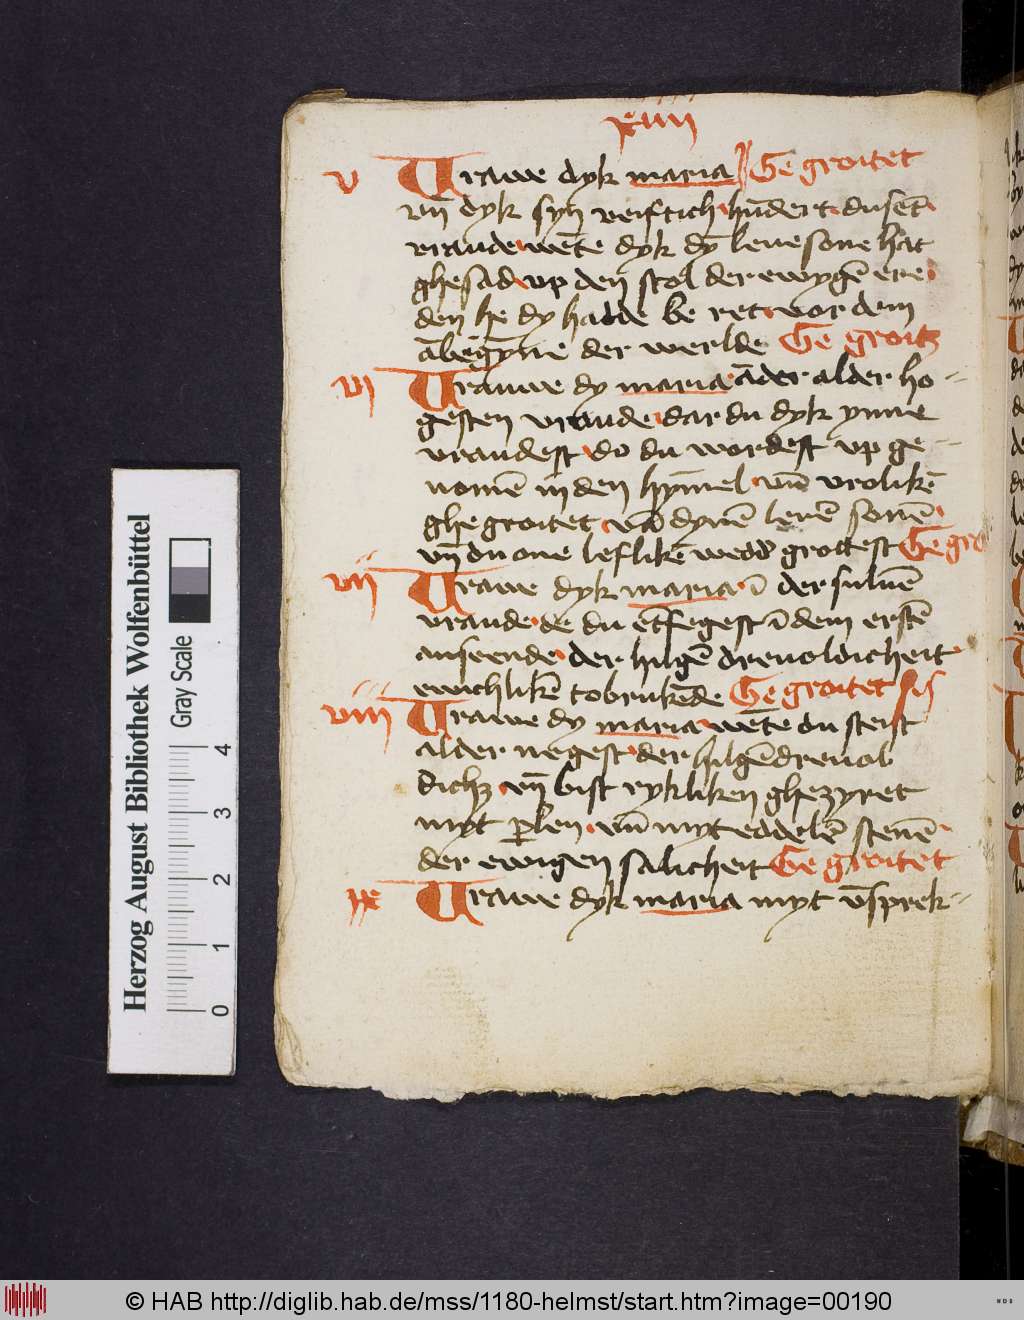 xiiii
v Vrawe dyk maria Ge groitet
vn̄ dyk syn veiftich hūdert dusēt
vraude wēte dyk dȳ leue sone hat
ghesad vp den stol der ewygē ere
den he dy hadde be ret vor dem
ābegȳne der werlde Ge groitz
vi Vrauwe dy maria āder alder ho-
gesten vraude dar du dyk ynne
vraudest do du wordest vp ge-
nomē in den hȳmel vn̄ vrolikē
ghe groitet vā dynē leuē sonē
vn̄ du one lefliken wedd grottest Ge gro
vii Vrawe dyk maria ī der suluē
vraude de du ētfegest ī dem erstē
anseende der hilgē dreuoldicheit
ewichlikē to brukēde Ge groitet sis
viii Vrawe dy maria wēte du steist
alder negest der hilgē dreuol
dichz vn̄ bist rykliken ghezyret
myt perlen vn̄ myt eddelē stenē
der ewigen salicheit Ge groitet
ix Vrawe dyk maria myt vsprek-
Herzog August Bibliothek Wolfenbüttel
Gray Scale
0 1 2 3 4
© HAB http://diglib.hab.de/mss/1180-helmst/start.htm?image=00190